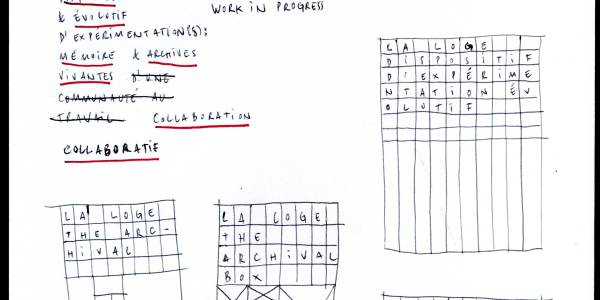 & ÉVOLUTIF
D'EXPÉRIMENTATION(S):
MÉMOIRE & ARCHIVES
VIVANTES D'UNE
COMMUNAUTÉ AU
TRAVAIL COLLABORATION
COLLABORATIF
WORK IN PROGRESS
LA LOGE
DISPOSITIF
D'EXPÉRIME
NTATION ÉV
OLUTIF
LA LOGE
THE ARC-
HIVAL
LA LOGE
THE
ARCHIVAL
BOX